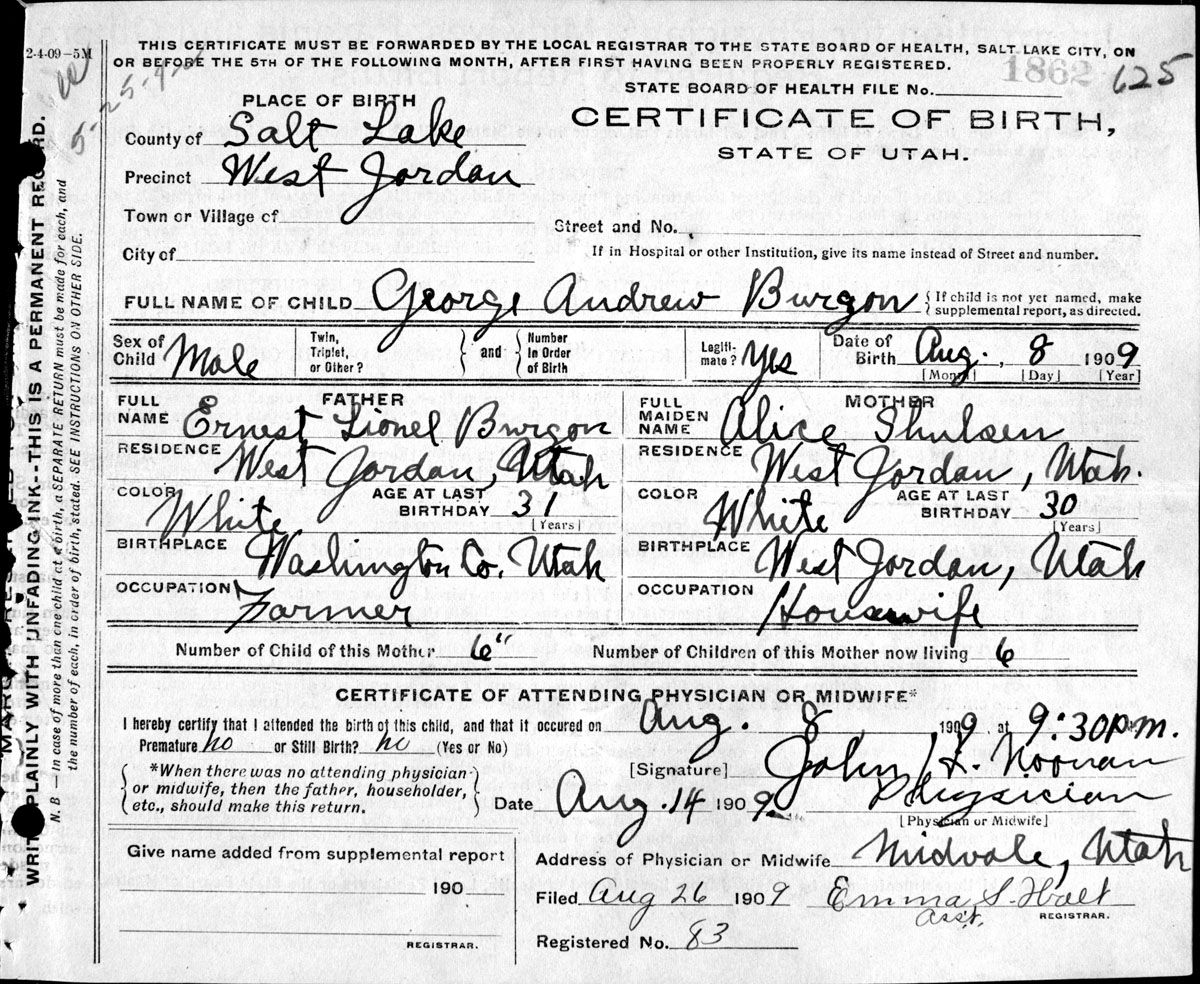 2-4-09-5M
THIS CERTIFICATE MUST BE FORWARDED BY THE LOCAL REGISTRAR TO THE STATE BOARD OF HEALTH, SALT LAKE CITY, ON
OR BEFORE THE 5TH OF THE FOLLOWING MONTH, AFTER FIRST HAVING BEEN PROPERLY REGISTERED.
1862 625
STATE BOARD OF HEALTH FILE No.
PLACE OF BIRTH
CERTIFICATE OF BIRTH,
STATE OF UTAH.
County of Salt Lake
Precinct West Jordan
Town or Village of
Street and No.
City of
If in Hospital or other Institution, give its name instead of Street and number.
FULL NAME OF CHILD George Andrew Burgon {If child is not yet named, make
supplemental report, as directed.
Sex of Child Male Twin, Triplet, or Other? } and { Number in Order of Birth Legiti-mate? Yes Date of Birth Aug. 8 1909
[Month] [Day] [Year]
FATHER MOTHER
FULL NAME Ernest Lionel Burgon FULL MAIDEN NAME Alice Shulsen
RESIDENCE West Jordan, Utah RESIDENCE West Jordan, Utah.
COLOR White AGE AT LAST BIRTHDAY 31 [Years] COLOR White AGE AT LAST BIRTHDAY 30 [Years]
BIRTHPLACE Washington Co. Utah BIRTHPLACE West Jordan, Utah
OCCUPATION Farmer OCCUPATION Housewife
Number of Child of this Mother 6" Number of Children of this Mother now living 6
CERTIFICATE OF ATTENDING PHYSICIAN OR MIDWIFE*
I hereby certify that I attended the birth of this child, and that it occured on Aug. 8, 1909, at 9:30 P.m.
Premature no or Still Birth? no (Yes or No)
*When there was no attending physician
or midwife, then the father, householder,
etc., should make this return.
[Signature] John H. Noonan
Date Aug. 14 1909 Physician
[Physician or Midwife]
Give name added from supplemental report
190
REGISTRAR.
Address of Physician or Midwife Midvale, Utah
Filed Aug 26 1909 Emma S. Holt
Asst. REGISTRAR.
Registered No. 83
WRITE PLAINLY WITH UNFADING INK--THIS IS A PERMANENT RECORD.
N. B.—In case of more than one child at a birth, a SEPARATE RETURN must be made for each, and
the number of each, in order of birth, stated. SEE INSTRUCTIONS ON OTHER SIDE.